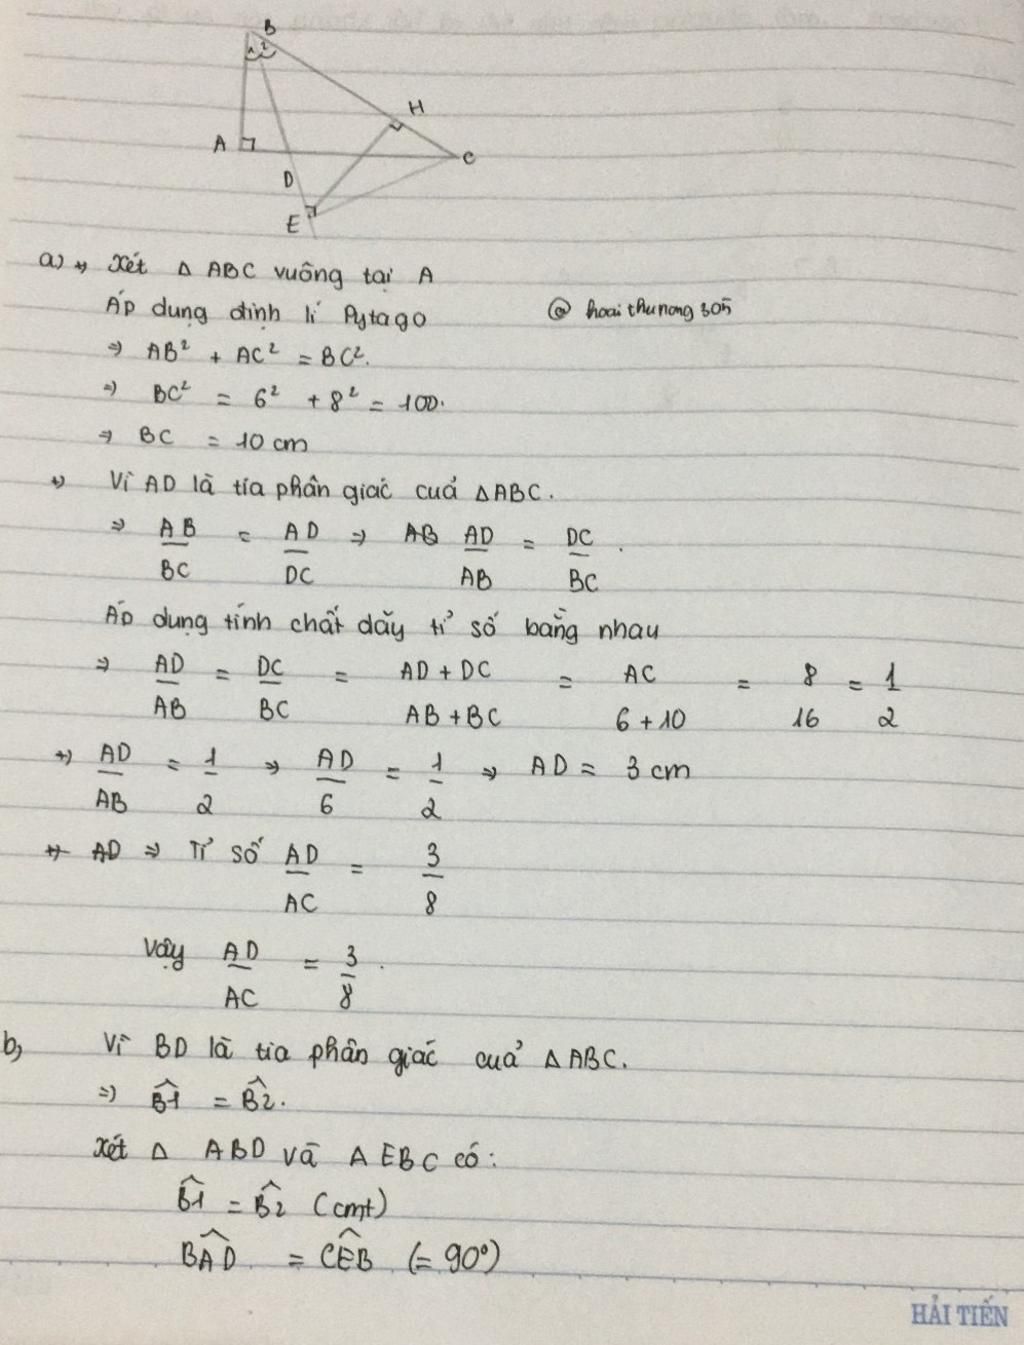 B
1 2
H
A
C
D
E
a) +) Xét Δ ABC vuông tại A
Áp dụng định lí Pytago
@ hoaithunong305
=> AB² + AC² = BC².
=> BC² = 6² + 8² = 100.
=> BC = 10 cm
+) Vì AD là tia phân giác cuả ΔABC.
=> AB/BC = AD/DC => AB AD/AB = DC/BC.
Áp dụng tính chất dãy tỉ số bằng nhau
=> AD/AB = DC/BC = AD + DC/AB + BC = AC/6 + 10 = 8/16 = 1/2
+) AD/AB = 1/2 => AD/6 = 1/2 => AD = 3 cm
+) AD => Tỉ số AD/AC = 3/8
Vậy AD/AC = 3/8.
b, Vì BD là tia phân giác cuả ΔABC.
=> B̂1 = B̂2.
Xét Δ ABD và Δ EBC có:
B̂1 = B̂2 (cmt)
BÂD = CÊB (= 90°)
HẢI TIẾN